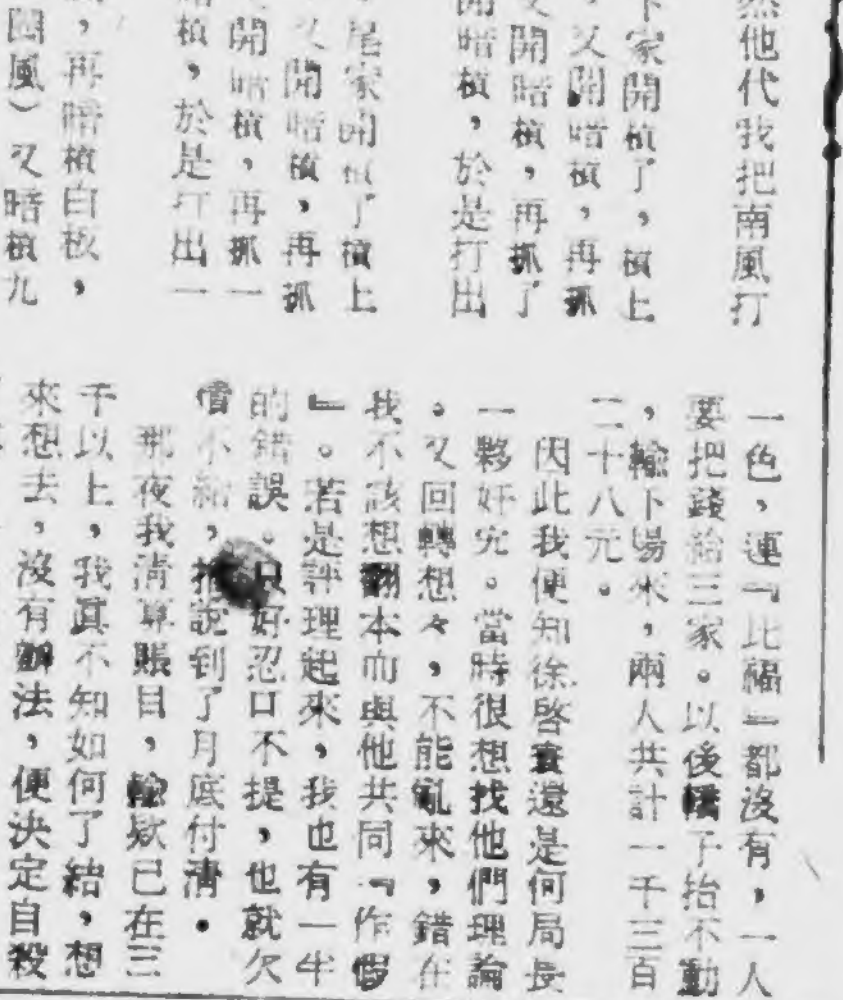 然他代我把南風打
下家開槓了，槓上
，又開暗槓，再抓
又開暗槓，再抓了
開暗槓，於是打出
，尾家開槓了槓上
又開暗槓，再抓
開暗槓，再抓一
暗槓，於是打出一
，再暗槓白板，
圈風）又暗槓九
一色，連『比福』都沒有，一人
要把錢給三家。以後轎子抬不動
，輸下場來，兩人共計一千三百
二十八元。
因此我便知徐啓還是何局長
一夥奸宄。當時很想找他們理論
。又回轉想々，不能亂來，錯在
我不該想翻本而與他共同『作假
』。若是評理起來，我也有一半
的錯誤。只好忍口不提，也就欠
債不給，推說到了月底付清。
那夜我清算賬目，輸欵已在三
千以上，我眞不知如何了結，想
來想去，沒有辦法，便決定自殺